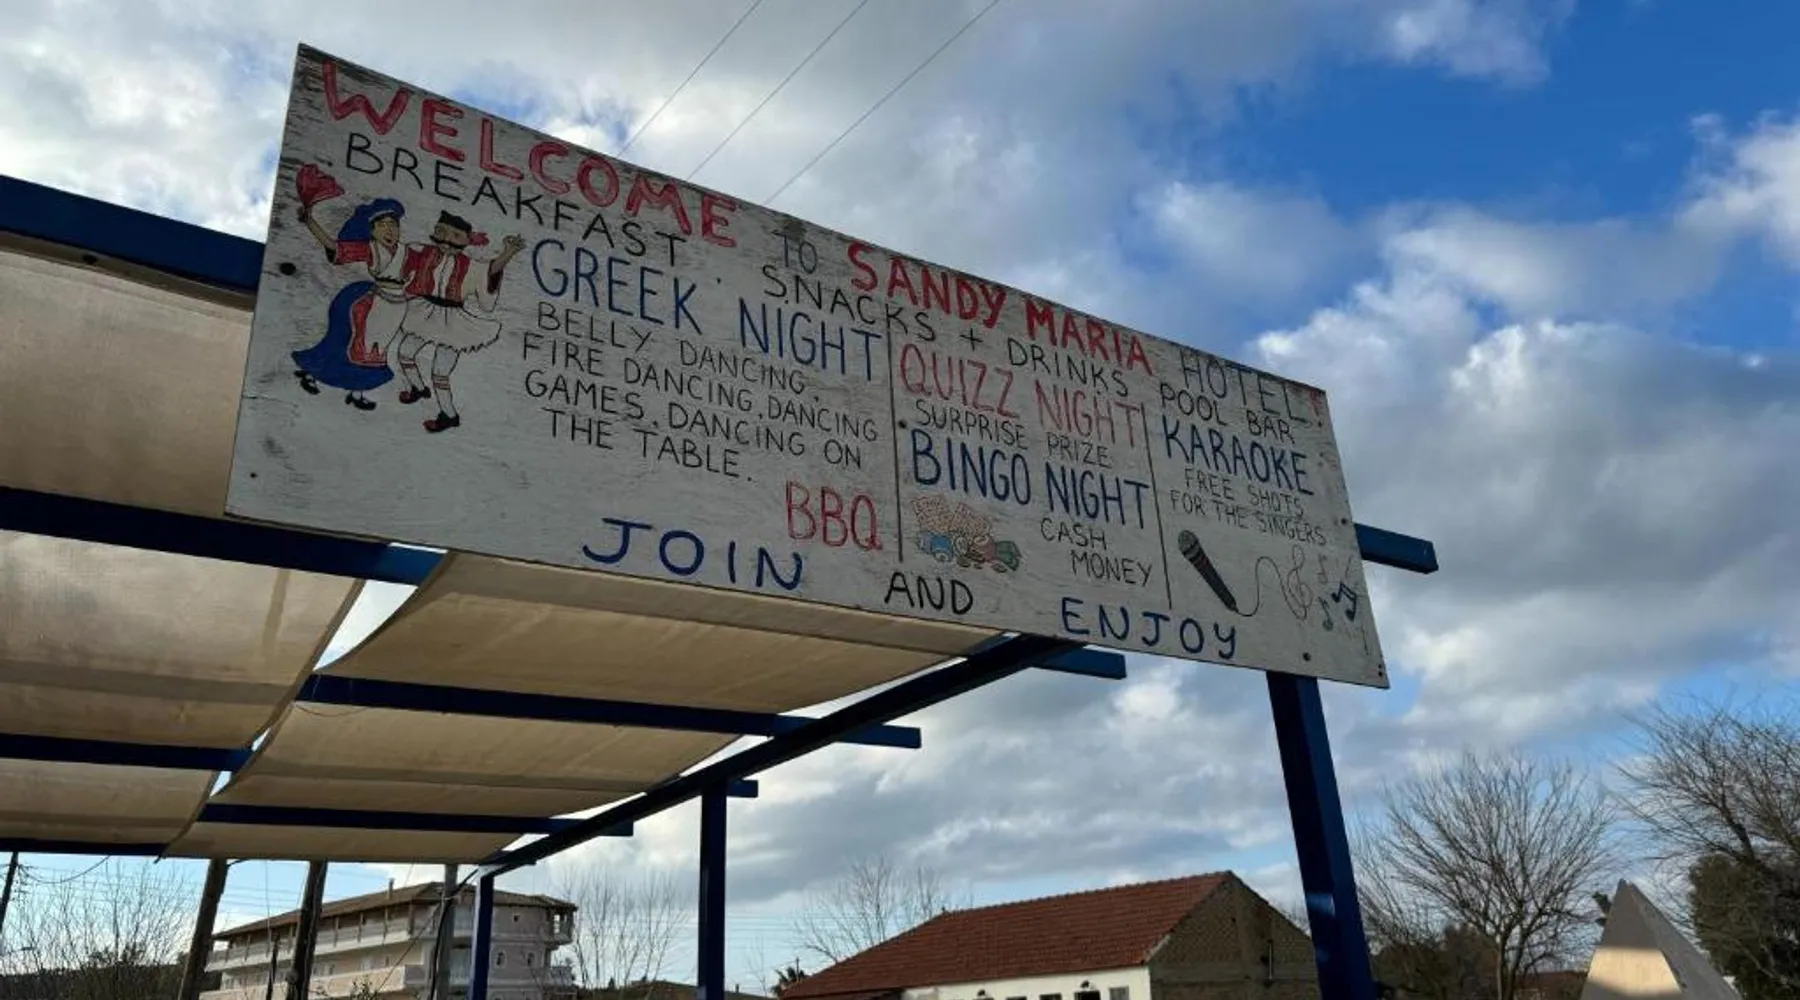 WELCOME TO SANDY MARIA HOTEL
BREAKFAST SNACKS + DRINKS POOL BAR
GREEK NIGHT
BELLY DANCING,
FIRE DANCING, DANCING
GAMES, DANCING ON
THE TABLE.
BBQ
QUIZZ NIGHT
SURPRISE PRIZE
BINGO NIGHT
CASH
MONEY
KARAOKE
FREE SHOTS
FOR THE SINGERS
JOIN AND ENJOY